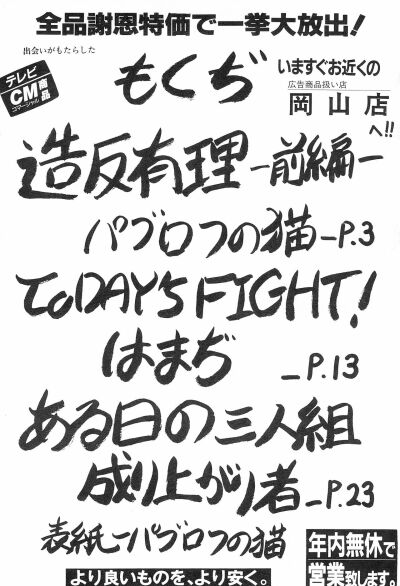 全品謝恩特価で一挙大放出!
出会いがもたらした
テレビ
CM商品
コマーシャル
もくぢ
いますぐお近くの
広告商品扱い店
岡山店
へ!!
造反有理-前編-
パブロフの猫-P.3
ToDAY'S FIGHT!
はまぢ -P.13
ある日の三人組
成り上がり者-P.23
表紙-パブロフの猫
年内無休で
営業致します。
より良いものを、より安く。